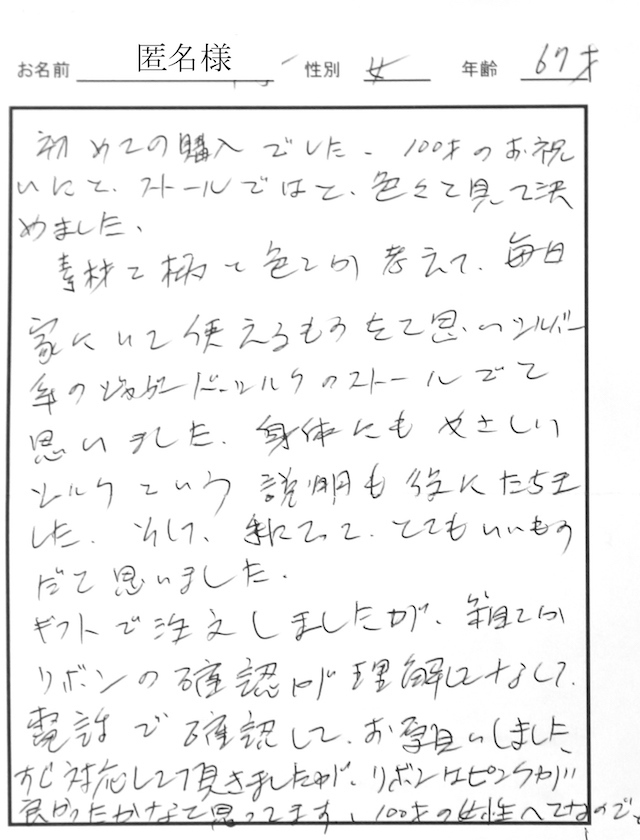 お名前 匿名様 性別 女 年齢 67才
初めての購入でした。100才のお祝
いにと、ストールではと、色々と見て決
めました。
素材と柄と色とか考えて、毎日
家にいて使えるものをと思いシルバー
年のジャガードシルクのストールでと
思いました。身体にもやさしい
シルクという説明も役にたちま
した。そして、手にとって、とてもいいもの
だと思いました。
ギフトで注文しましたが、箱とか
リボンの確認が理解してなくて、
電話で確認して、お願いしました。
対応して頂きましたが、リボンはピンクが
良かったかなと思ってます、100才の女性へとなので、